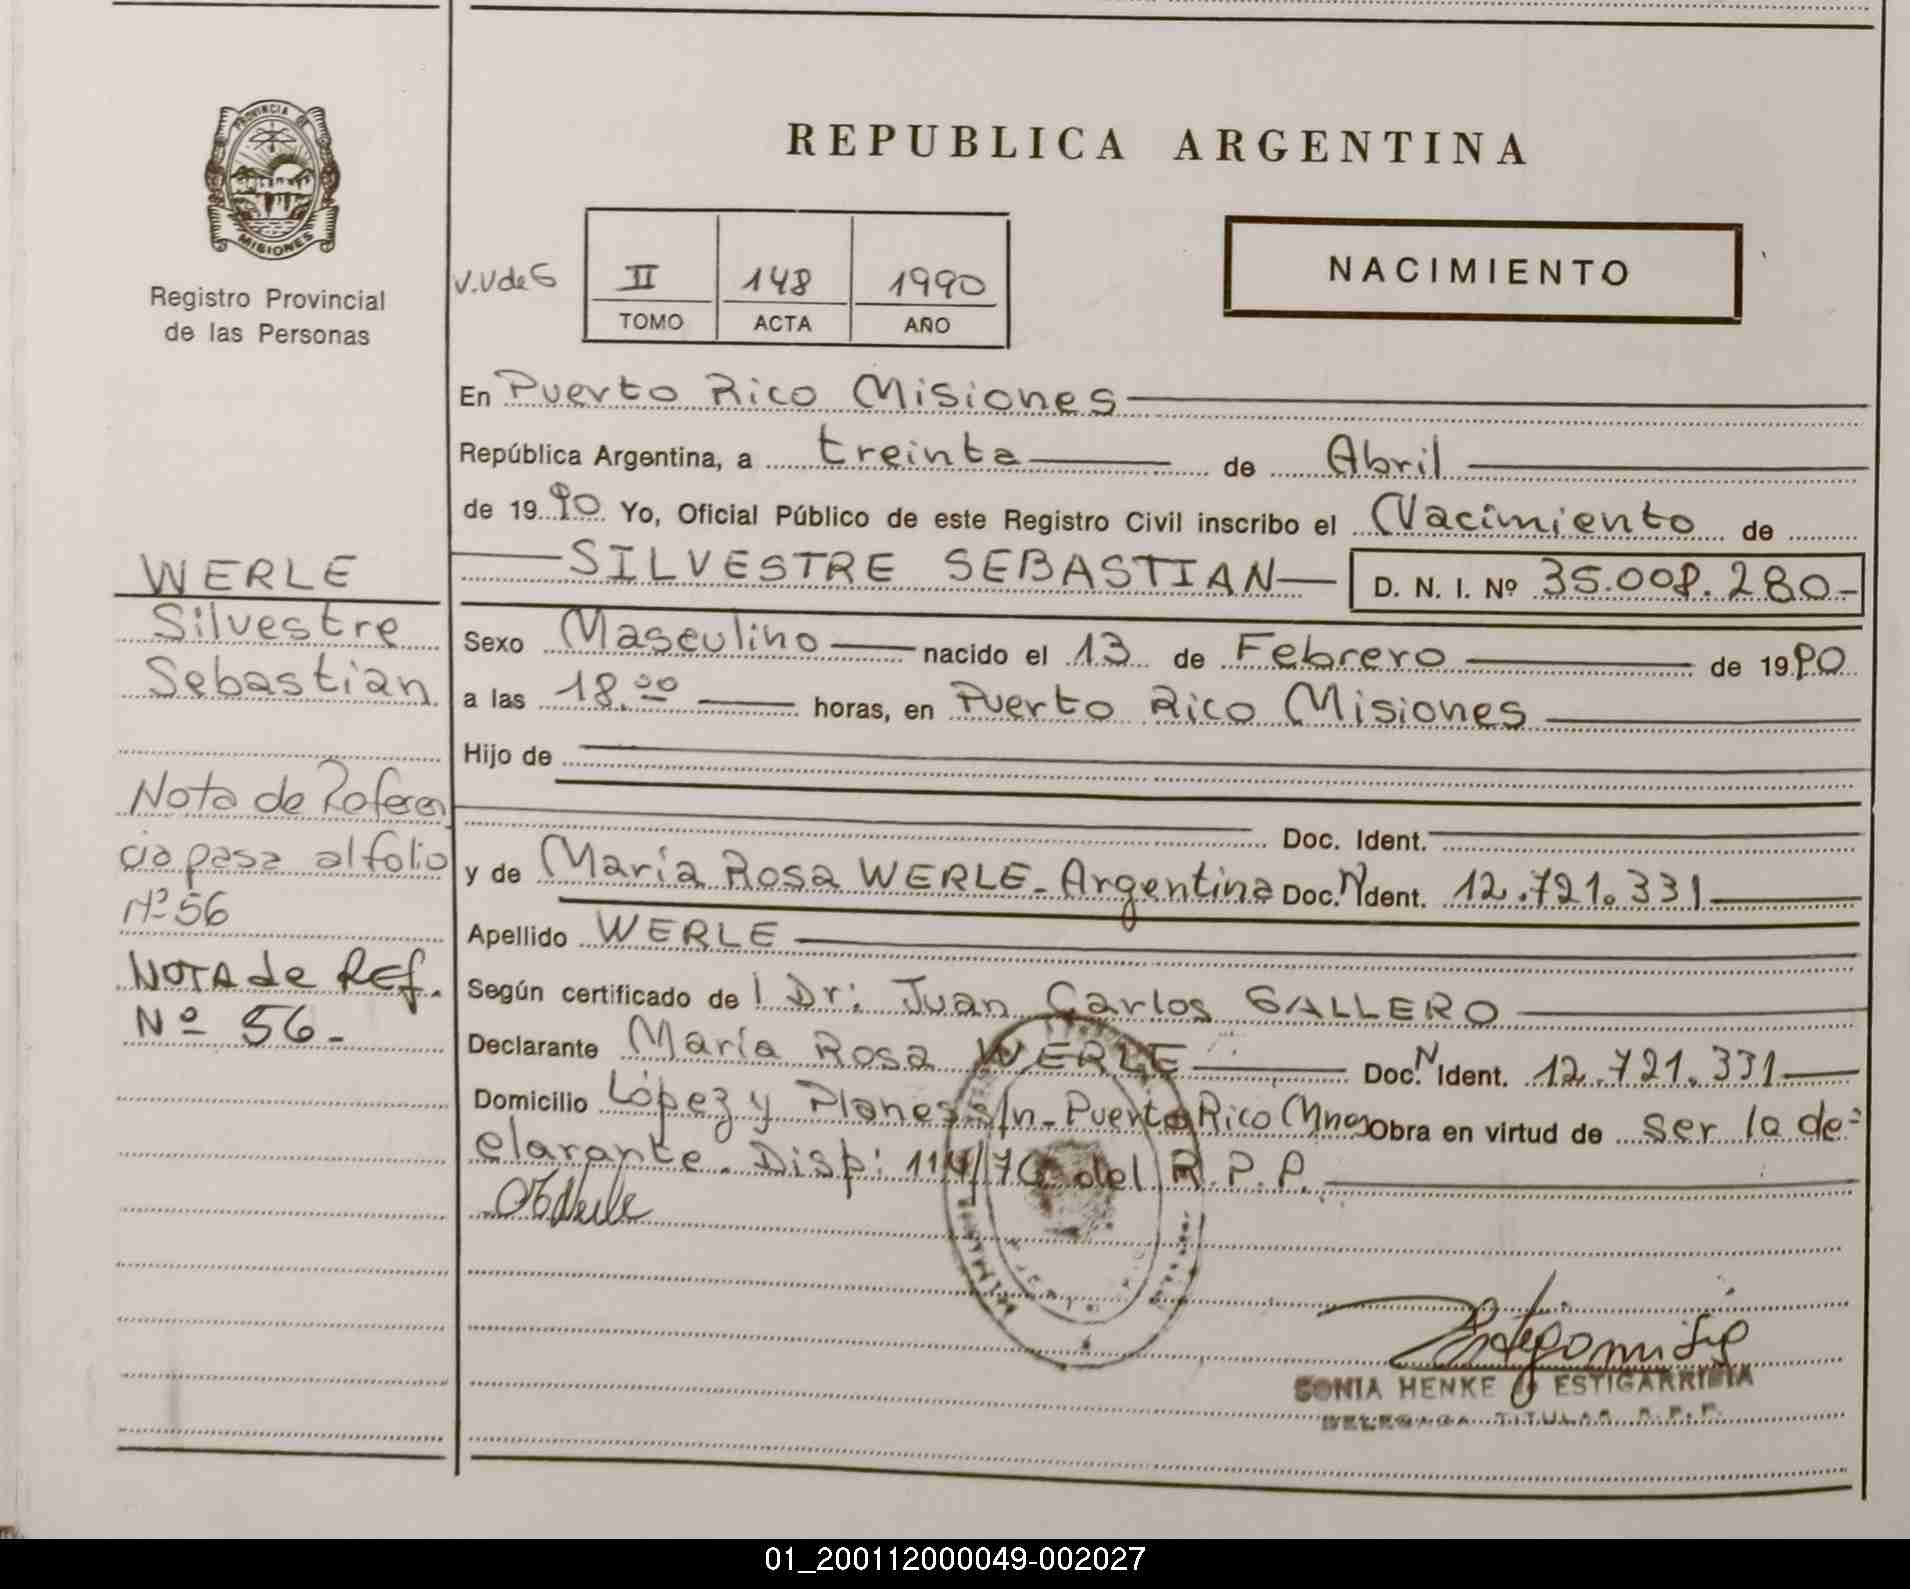 PROVINCIA DE
MISIONES
Registro Provincial
de las Personas
REPUBLICA ARGENTINA
NACIMIENTO
V.V de G
II 148 1990
TOMO ACTA AÑO
En Puerto Rico Misiones
República Argentina, a treinta de Abril
de 1990 Yo, Oficial Público de este Registro Civil inscribo el Nacimiento de
SILVESTRE SEBASTIAN D. N. I. Nº 35.008.280-
Sexo Masculino nacido el 13 de Febrero de 1990
a las 18.00 horas, en Puerto Rico Misiones
Hijo de
Doc. Ident.
y de María Rosa WERLE-Argentina Doc. N Ident. 12.721.331
Apellido WERLE
Según certificado de l Dr: Juan Carlos GALLERO
Declarante María Rosa WERLE Doc. N Ident. 12.721.331
Domicilio López y Planes s/n-Puerto Rico Mnes Obra en virtud de ser la de=
clarante. Disp: 114/76 del R.P.P.
SONIA HENKE de ESTIGARRIBIA
DELEGADA TITULAR R.P.P.
WERLE
Silvestre
Sebastian
Nota de Referen
cia pasa al folio
Nº 56
NOTA de REF.
Nº 56-
01_200112000049-002027